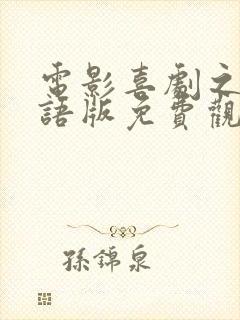 電影喜劇之
語版免費觀
孫錦泉